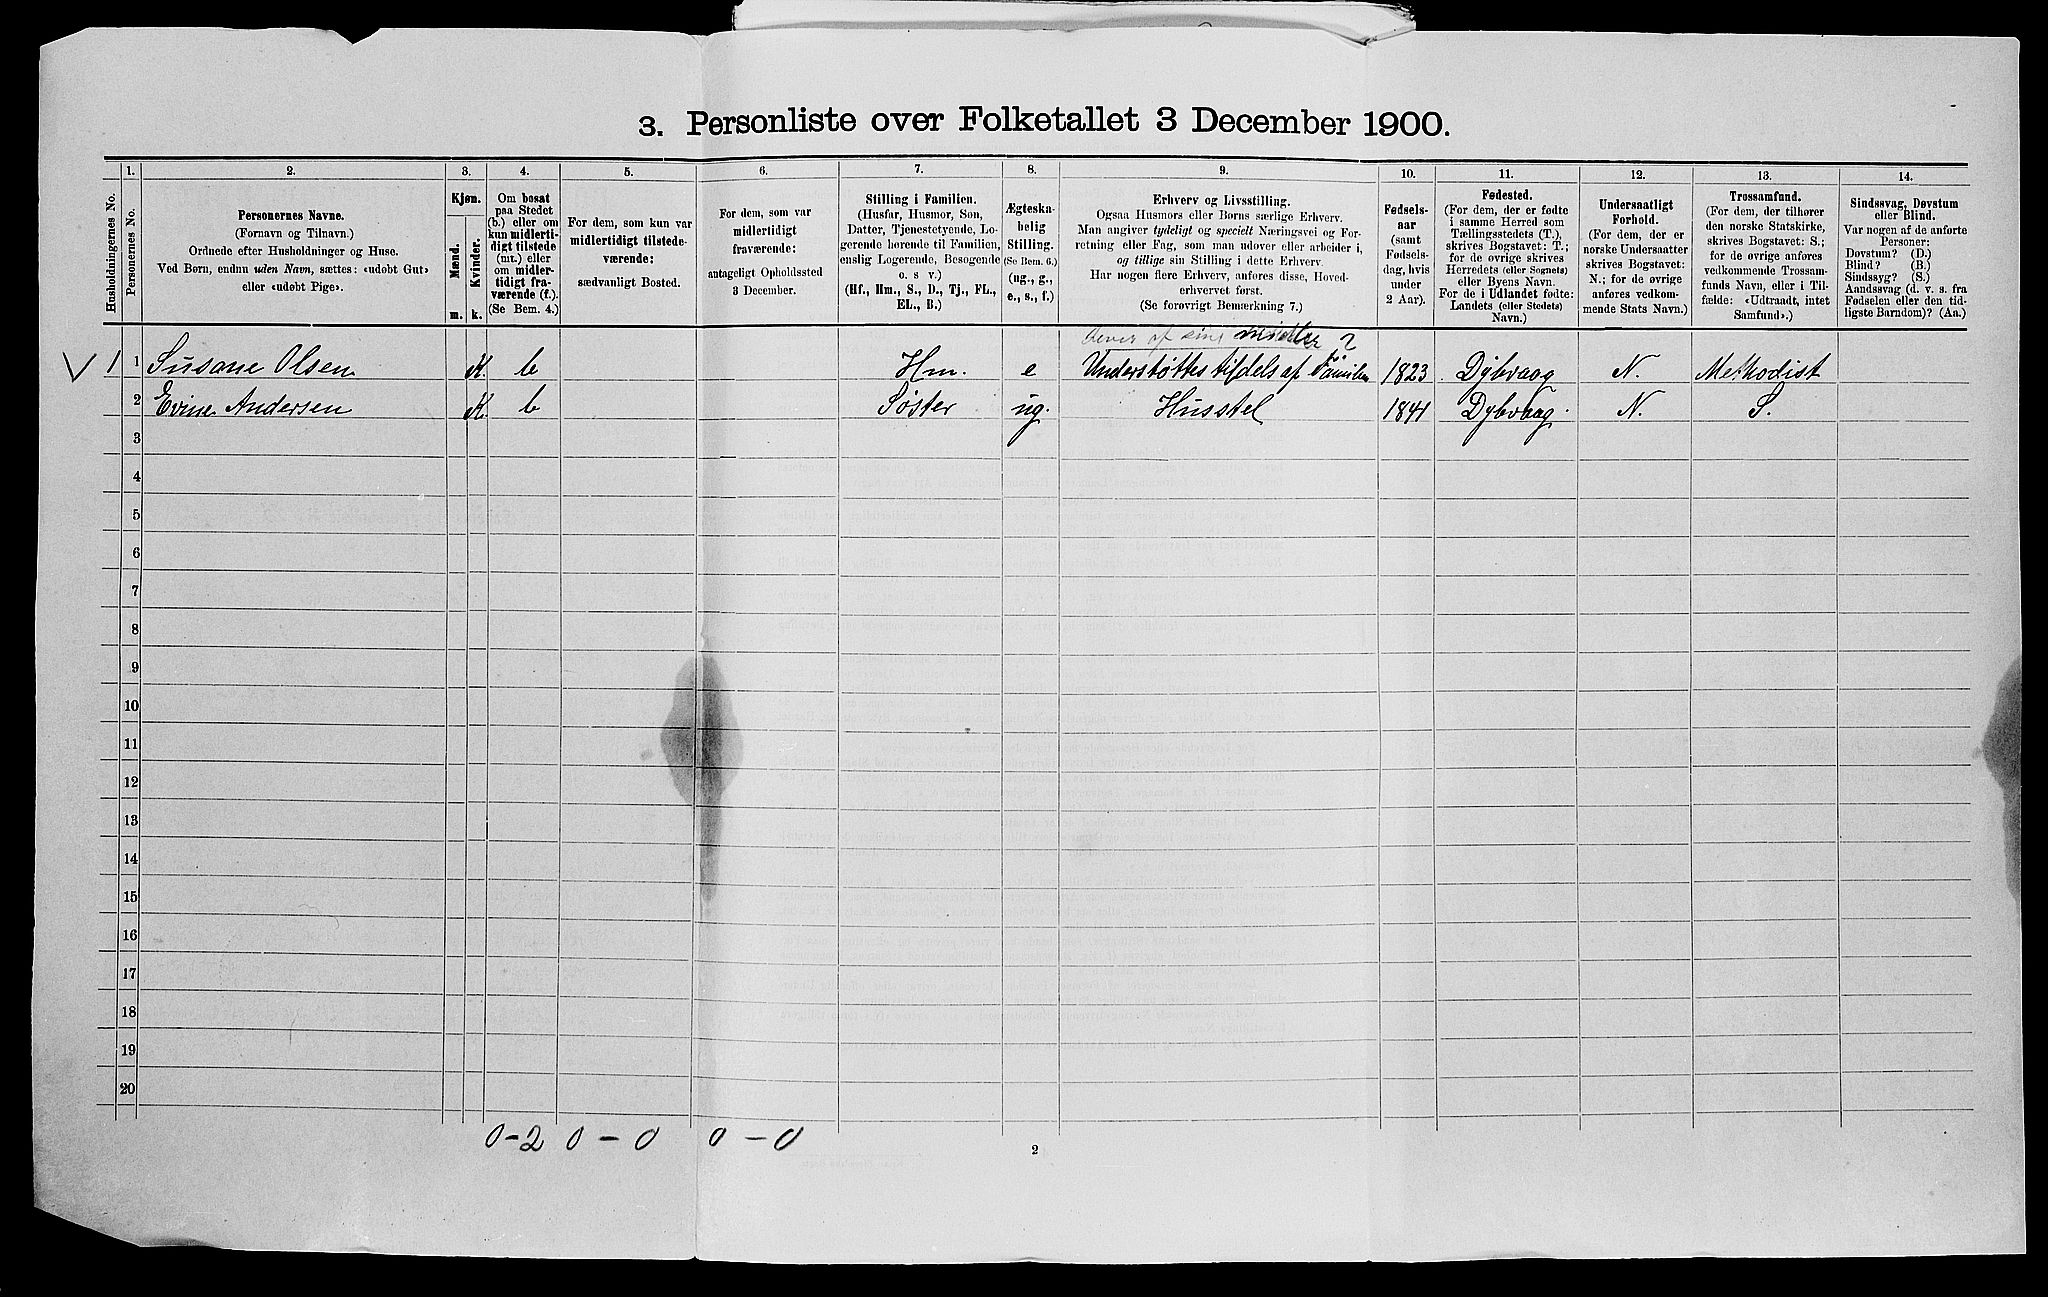 3. Personliste over Folketallet 3 December 1900.
1. 2. 3. 4. 5. 6. 7. 8. 9. 10. 11. 12. 13. 14.
Husholdningernes No.
Personernes No.
Personernes Navne.
(Fornavn og Tilnavn.)
Ordnede efter Husholdninger og Huse.
Ved Børn, endnu uden Navn, sættes: «udøbt Gut»
eller «udøbt Pige».
Kjøn.
Mænd.
Kvinder.
m. k.
Om bosat
paa Stedet
(b.) eller om
kun midlerti-
digt tilstede
(mt.) eller
om midler-
tidigt fra-
værende (f.).
(Se Bem. 4.)
For dem, som kun var
midlertidigt tilstede-
værende:
sædvanligt Bosted.
For dem, som var
midlertidigt
fraværende:
antageligt Opholdssted
3 December.
Stilling i Familien.
(Husfar, Husmor, Søn,
Datter, Tjenestetyende, Lo-
gerende hørende til Familien,
enslig Logerende, Besøgende
o. s v.)
(Hf., Hm., S., D., Tj., FL.,
EL., B.)
Ægteska-
belig
Stilling.
(Se Bem. 6.)
(ug., g.,
e., s., f.)
Erhverv og Livsstilling.
Ogsaa Husmors eller Børns særlige Erhverv.
Man angiver tydeligt og specielt Næringsvei og For-
retning eller Fag, som man udover eller arbeider i,
og tillige sin Stilling i dette Erhverv.
Har nogen flere Erhverv, anføres disse, Hoved-
erhvervet først.
(Se forøvrigt Bemærkning 7.)
Fødsels-
aar
(samt
Fødsels-
dag, hvis
under
2 Aar).
Fødested.
(For dem, der er fødte
i samme Herred som
Tællingsstedets (T.),
skrives Bogstavet: T.;
for de øvrige skrives
Herredets (eller Sognets)
eller Byens Navn.
For de i Udlandet fødte:
Landets (eller Stedets)
Navn.)
Undersaatligt
Forhold.
(For dem, der er
norske Undersaatter
skrives Bogstavet:
N.; for de øvrige
anføres vedkom-
mende Stats Navn.)
Trossamfund.
(For dem, der tilhører
den norske Statskirke,
skrives Bogstavet: S.;
for de øvrige anføres
vedkommende Trossam-
funds Navn, eller i Til-
fælde: «Udtraadt, intet
Samfund».)
Sindssvag, Døvstum
eller Blind.
Var nogen af de anførte
Personer:
Døvstum? (D.)
Blind? (B.)
Sindssyg? (S.)
Aandssvag (d. v. s. fra
Fødselen eller den tid-
ligste Barndom)? (Aa.)
Lever af sine midler ?
1 1 Susane Olsen K. b Hm. e Understøttes tildels af Familien 1823 Dybvaag N. Methodist
2 Evine Andersen K. b Søster ug. Husstel 1841 Dybvaag. N. S.
3
4
5
6
7
8
9
10
11
12
13
14
15
16
17
18
19
20
0-2 0-0 0-0
2